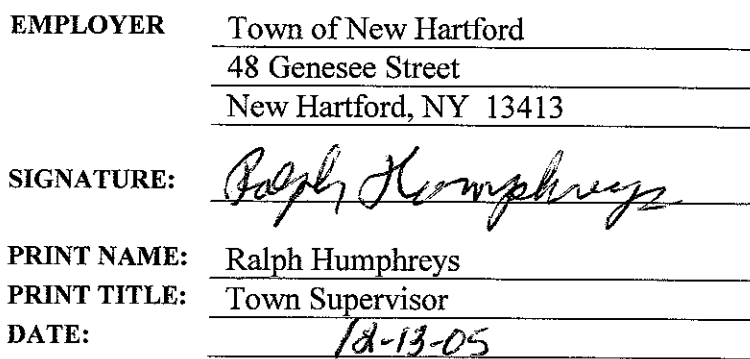 EMPLOYER Town of New Hartford
48 Genesee Street
New Hartford, NY 13413
SIGNATURE: Ralph Humphreys
PRINT NAME: Ralph Humphreys
PRINT TITLE: Town Supervisor
DATE: 12-13-05